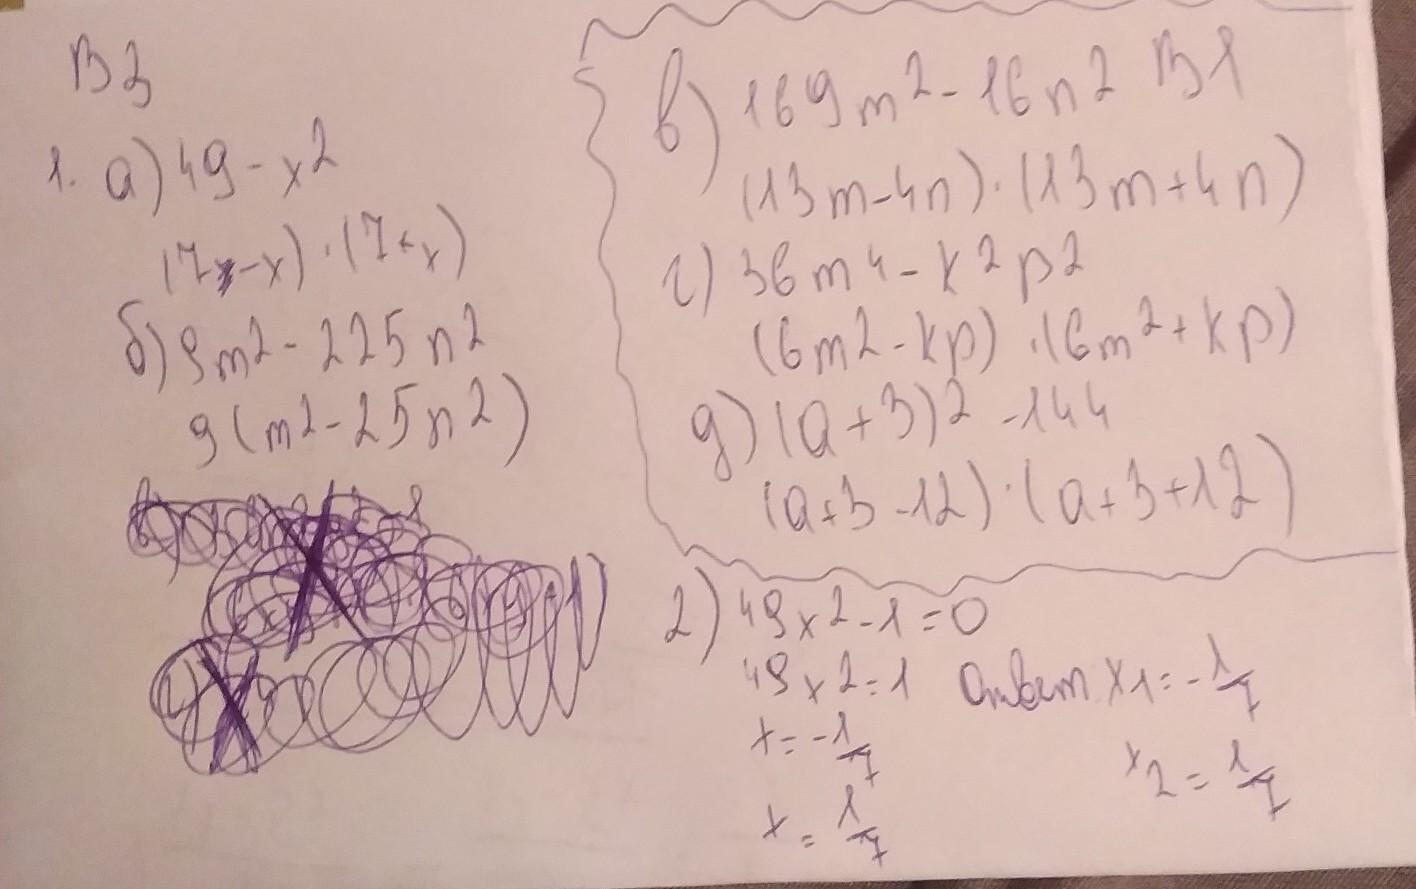 В3
1. а) 49 - x2
(7-x)·(7+x)
б) 9m2 - 225n2
9(m2-25n2)
в) 169m2 - 16n2 В1
(13m-4n)·(13m+4n)
г) 36m4 - k2p2
(6m2-kp)·(6m2+kp)
д) (a+3)2 -144
(a+3-12)·(a+3+12)
2) 49x2-1=0
49x2=1 Ответ x1=-1/7
x=-1/7
x2=1/7
x=1/7